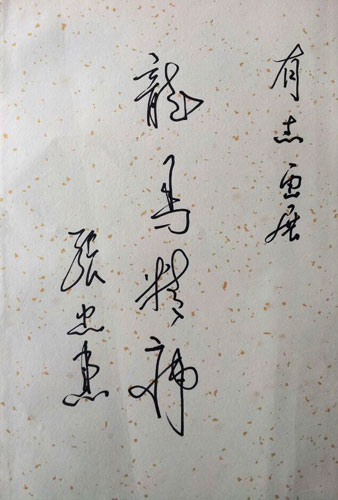 有志画展
龍馬精神
張忠惠